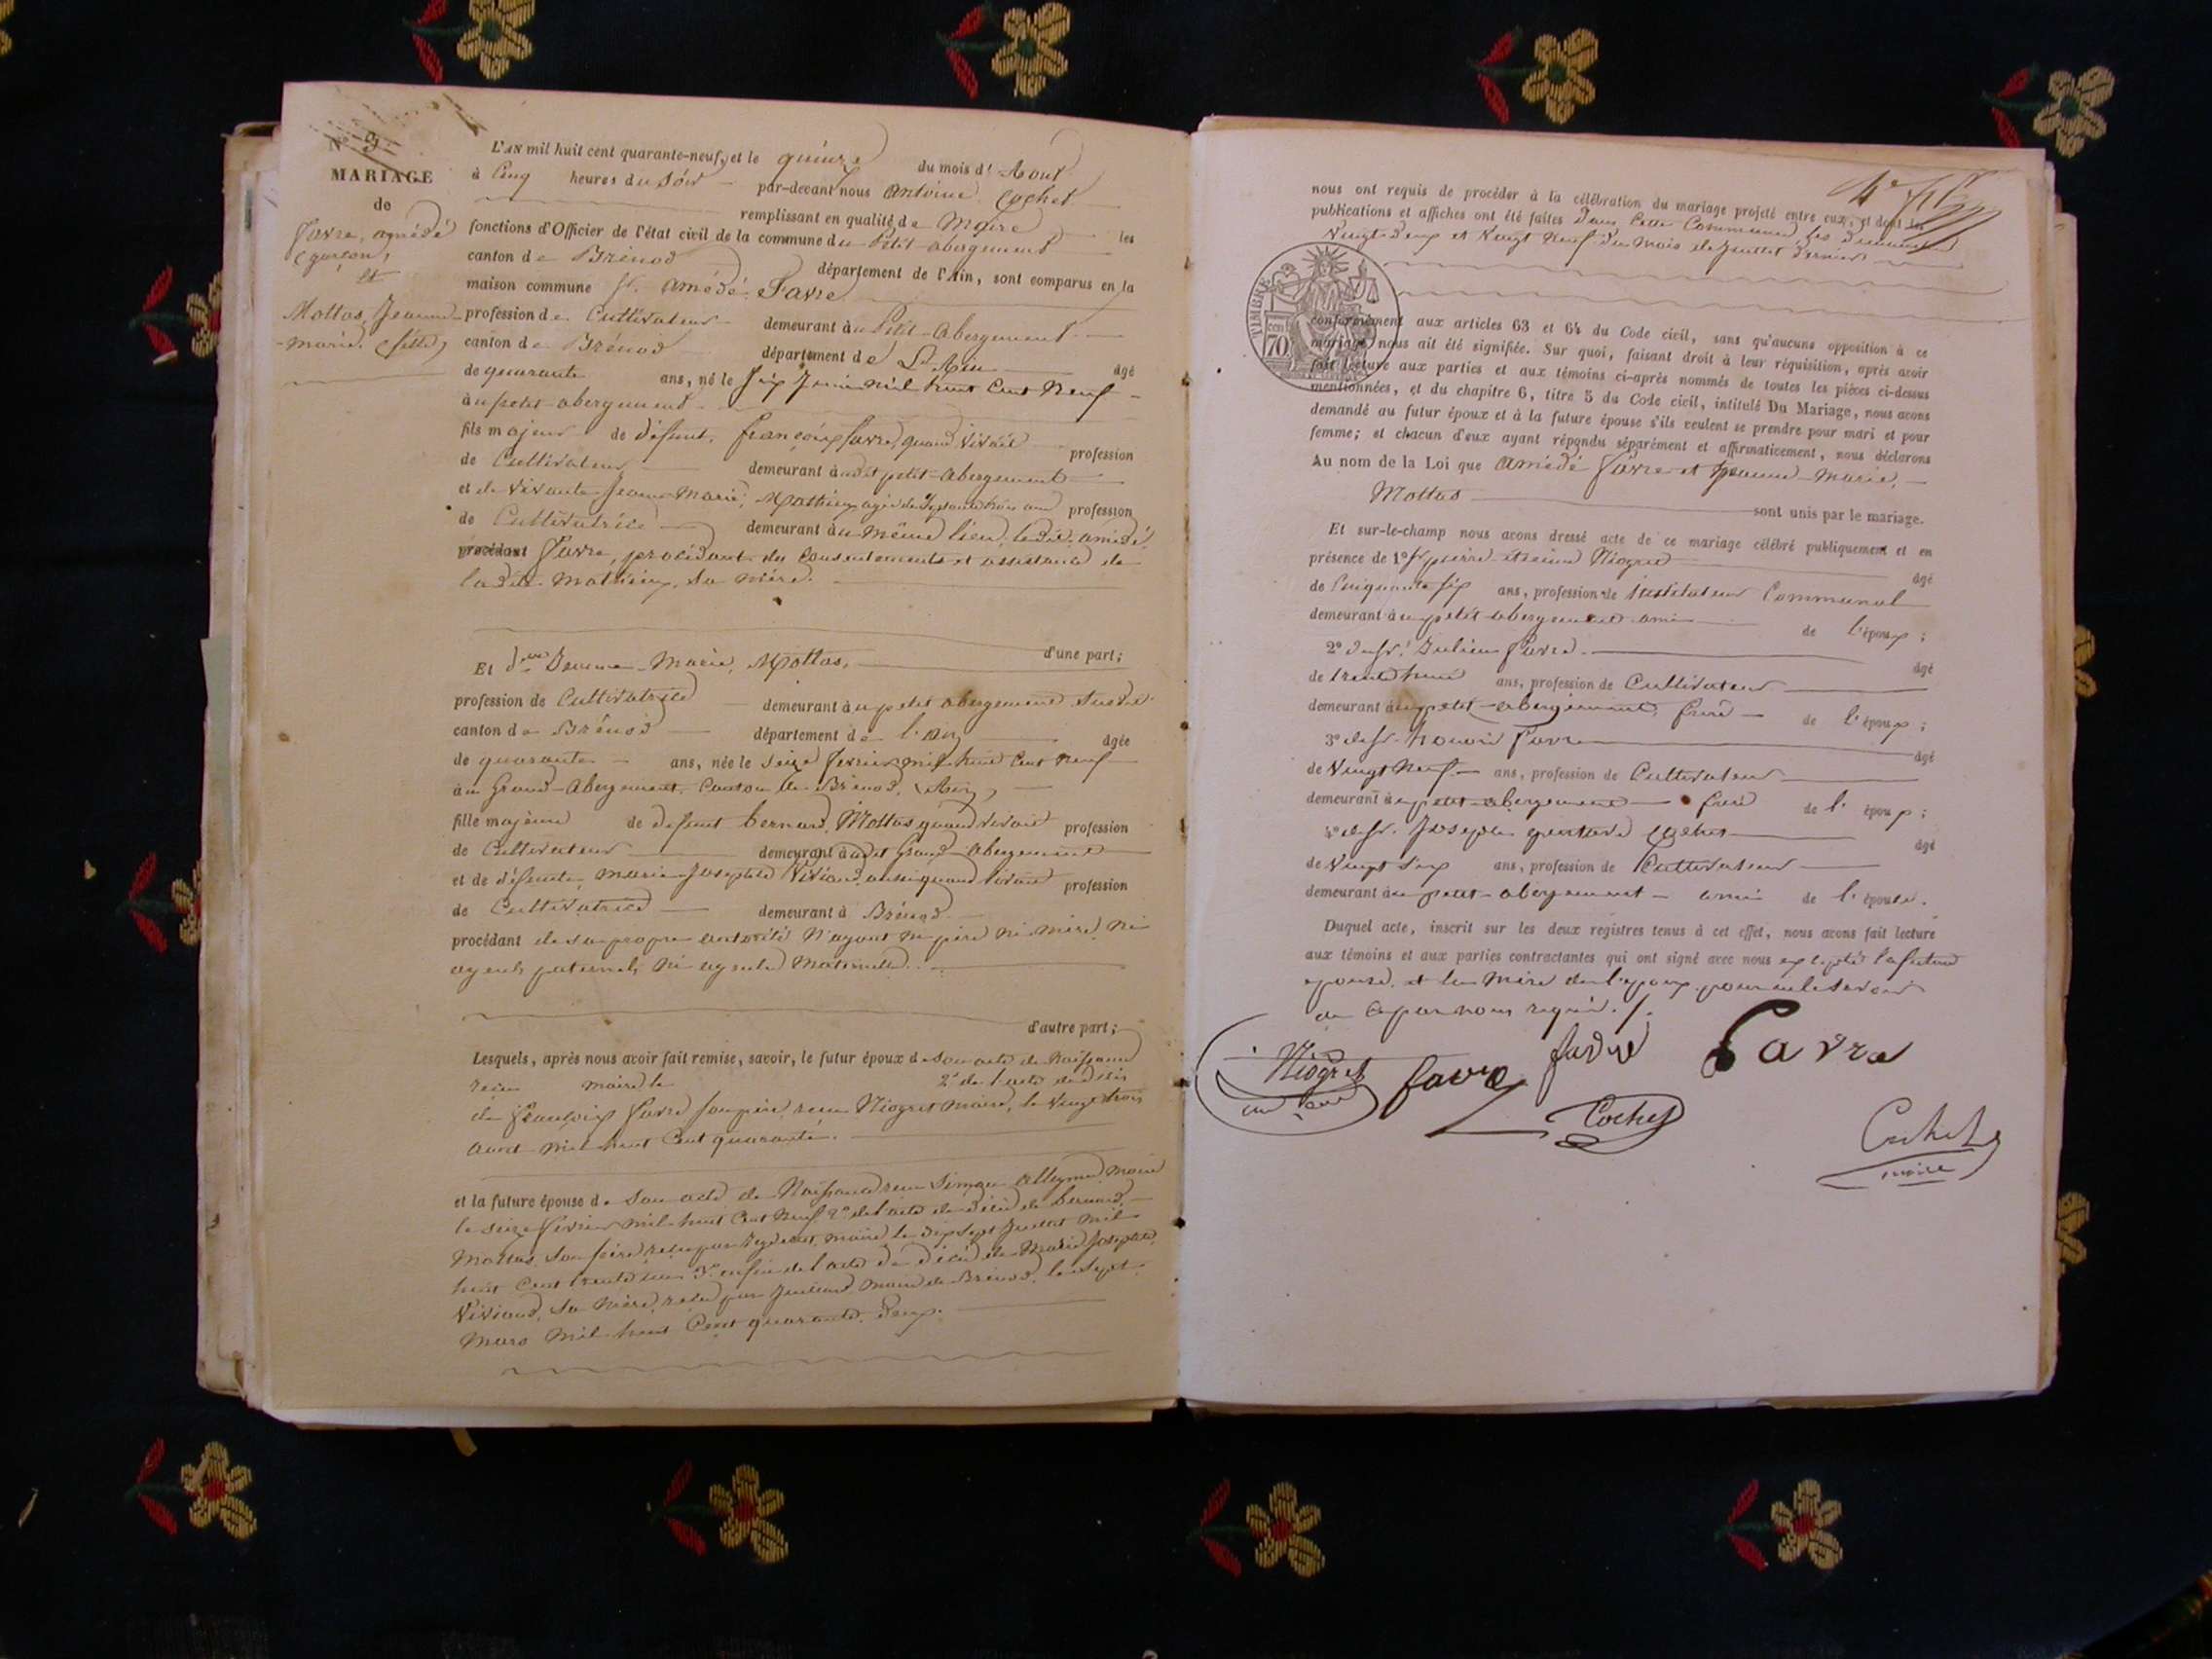 N° 9.
MARIAGE
de
Favre, amédé
(garçon)
et
Mottas, Jeanne-
-marie. (fille)
L'AN mil huit cent quarante-neuf, et le quinze du mois d'Aout
à Cinq heures du Soir par-devant nous antoine Cochet
remplissant en qualité de Maire les
fonctions d'Officier de l'état civil de la commune du Petit abergement
canton de Brénod département de l'Ain, sont comparus en la
maison commune Sr. amédé Favre
profession de Cultivateur demeurant au Petit-Abergement
canton de Brénod département de L'Ain âgé
de quarante ans, né le six Juin mil huit Cent Neuf
au petit-abergement
fils majeur de défunt françois favre, quand vivait profession
de Cultivateur demeurant audit petit-abergement
et de vivante Jeanne Marie Mathieux agée de Septante trois ans profession
de Cultivatrice demeurant au même lieu, ledit amédé
procédant Favre, procédant du Consentement et assistance de
ladite Mathieux, sa mère.
d'une part;
Et dlle Jeanne-Marie Mottas,
profession de Cultivatrice demeurant au petit abergement susdit
canton de Brénod département de l'Ain âgée
de quarante ans, née le seize fevrier mil huit Cent neuf
au Grand-Abergement, Canton de Brénod, (Ain)
fille majeure de defunt bernard Mottas quand vivait profession
de Cultivateur demeurant audit Grand-abergement
et de défunte, marie-Josephte Viviand, aussi quand vivait profession
de Cultivatrice demeurant à Brénod
procédant de sa propre autorité n'ayant ni père ni mère, ni
ayeuls paternels, ni ayeuls Maternelle.
d'autre part;
Lesquels, après nous avoir fait remise, savoir, le futur époux de son acte de Naissance
reçu maire le 2° de l'acte de décès
de françois favre son père, reçu Niogret maire, le vingt trois
avril mil huit Cent quarante.
et la future épouse de son acte de Naissance reçu maire
le seize fevrier mil huit Cent Neuf 2° de l'acte de décès de bernard
Mottas, son père, reçu par maire, le dix sept Juillet mil
huit Cent trente 3° enfin de l'acte de décès de Marie Josephte
Viviand, sa mère, reçu par maire de Brénod, le sept
mars mil huit Cent quarante deux.
nous ont requis de procéder à la célébration du mariage projeté entre eux, et dont les
publications et affiches ont été faites dans Cette Commune, les dimanches
Vingt-deux et Vingt Neuf du Mois de Juillet dernier
TIMBRE
CEN
70
conformément aux articles 63 et 64 du Code civil, sans qu'aucune opposition à ce
mariage nous ait été signifiée. Sur quoi, faisant droit à leur réquisition, après avoir
fait lecture aux parties et aux témoins ci-après nommés de toutes les pièces ci-dessus
mentionnées, et du chapitre 6, titre 5 du Code civil, intitulé Du Mariage, nous avons
demandé au futur époux et à la future épouse s'ils veulent se prendre pour mari et pour
femme; et chacun d'eux ayant répondu séparément et affirmativement, nous déclarons
Au nom de la Loi que amédé Favre et Jeanne-Marie,
Mottas
sont unis par le mariage.
Et sur-le-champ nous avons dressé acte de ce mariage célébré publiquement et en
présence de 1° Sr pierre-étienne Niogret âgé
de Cinquante six ans, profession de instituteur Communal
demeurant au petit-abergement ami de l'époux;
2° du Sr. Julien favre. âgé
de trente huit ans, profession de Cultivateur
demeurant au petit-abergement, frère de l'époux;
3° de Sr. honoré favre âgé
de Vingt Neuf ans, profession de Cultivateur
demeurant au petit-abergement frère de l'époux;
4° de Sr. Joseph gustave Cochet âgé
de Vingt six ans, profession de Cultivateur
demeurant au petit-abergement ami de l'épouse.
Duquel acte, inscrit sur les deux registres tenus à cet effet, nous avons fait lecture
aux témoins et aux parties contractantes qui ont signé avec nous excepté la future
epouse, et la Mère de l'epoux pour ne le savoir
de Ce par nous requis./.
Niogret favre favre Favre
Cochet
Cochet
maire